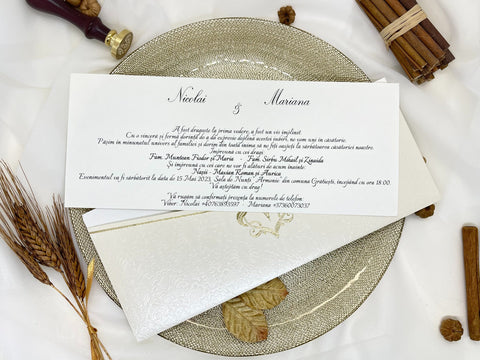 Nicolai & Mariana
A fost dragoste la prima vedere, a fost un vis împlinit.
Cu o sinceră și fermă dorință de a da expresie deplină acestei iubiri, ne vom uni în căsătorie.
Pășim în minunatul univers al familiei și dorim din toată inima să fiți oaspeți la sărbătoarea căsătoriei noastre.
Împreună cu cei dragi
Fam. Muntean Fiodor și Maria - Fam. Sîrbu Mihail și Zinaida
Și împreună cu cei care ne vor fi alături de acum înainte:
Nașii - Maxian Roman și Aurica
Evenimentul va fi sărbătorit la data de 15 Mai 2023, Sala de Nunți "Armonie" din comuna Gratiești, începând cu ora 18:00.
Vă așteptăm cu drag!
Vă rugăm să confirmați prezența la numerele de telefon:
Viber: Nicolai - Mariana +37360073037